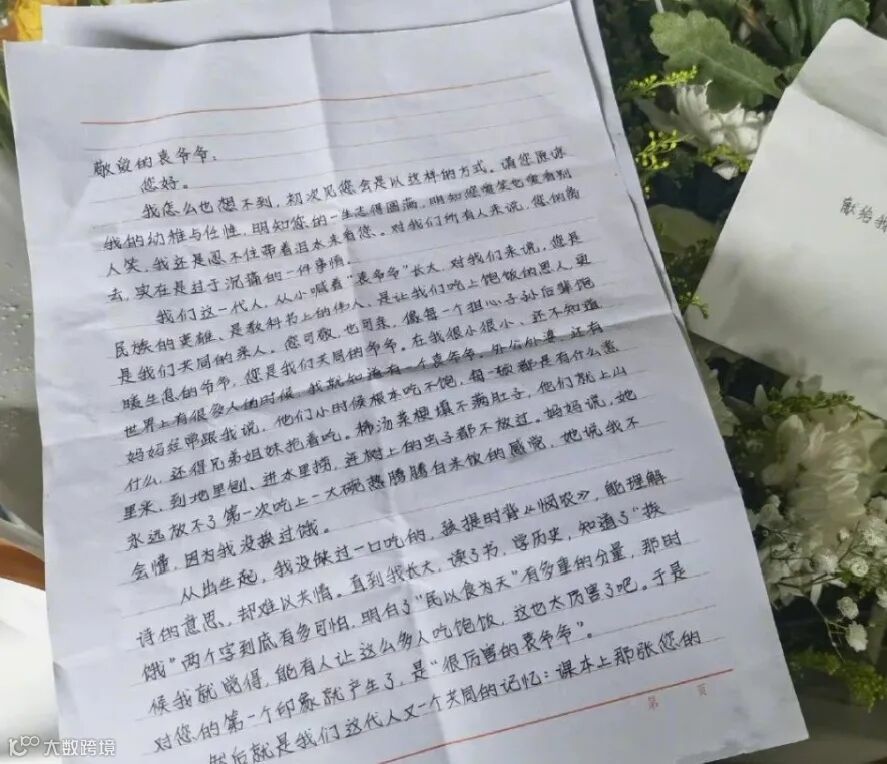 敬爱的袁爷爷：
您好。
我怎么也想不到，初次见您会是以这样的方式。请您原谅
我的幼稚与任性，明知您的一生志得圆满，明知您爱笑也爱看别
人笑，我还是忍不住带着泪水来看您。对我们所有人来说，您的离
去，实在是过于沉痛的一件事情。
我们这一代人，从小喊着“袁爷爷”长大，对我们来说，您是
民族的英雄、是教科书上的伟人、是让我们吃上饱饭的恩人，更
是我们共同的亲人。您可敬，也可亲，像每一个担心子孙后辈饱
暖生息的爷爷，您是我们共同的爷爷。在我很小很小、还不知道
世界上有很多人的时候，我就知道有一个袁爷爷。外公外婆，还有
妈妈经常跟我说，他们小时候根本吃不饱，每一顿都是有什么造
什么，还得兄弟姐妹抢着吃。稀汤菜梗填不满肚子，他们就上山
里采，到地里刨、进水里捞，连树上的虫子都不放过。妈妈说，她
永远放不了第一次吃上一大碗热腾腾白米饭的感觉，她说我不
会懂，因为我没挨过饿。
从出生起，我没缺过一口吃的，孩提时背《悯农》，能理解
诗的意思，却难以共情。直到我长大，读了书，学历史，知道了“挨
饿”两个字到底有多可怕，明白了“民以食为天”有多重的分量，那时
候我就觉得，能有人让这么多人吃饱饭，这也太厉害了吧。于是
对您的第一个印象就产生了，是“很厉害的袁爷爷”。
然后就是我们这代人又一个共同的记忆：课本上那张您的
第 页
献给我
大数跨境